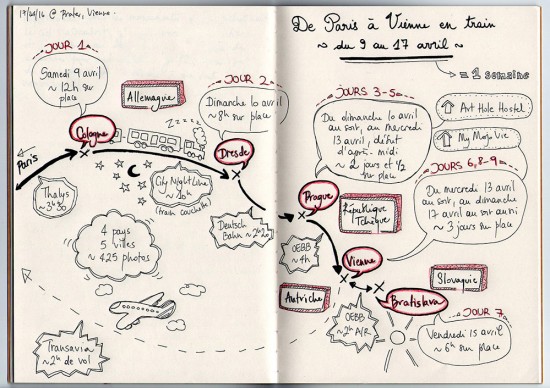 17/04/16 @ Prater, Vienne.
De Paris à Vienne en train
~ du 9 au 17 avril ~
= 1 semaine
JOUR 1
Samedi 9 avril
~ 12h sur
place
Allemagne
Cologne
Paris
Thalys
~ 3h30
JOUR 2
Dimanche 10 avril
~ 8h sur place
ZZZZZ
Dresde
City Night Line
~ 10h
(train couchette)
Deutsch
Bahn ~ 2h20
4 pays
5 villes
~ 425 photos
Transavia
~ 2h de vol
JOURS 3-5
Du dimanche 10 avril
au soir, au mercredi
13 avril, début
d'après-midi
~ 2 jours et 1/2
sur place
Art Hole Hostel
My Mojo Vie
Prague
République
Tchèque
OEBB
~ 4h
JOURS 6, 8-9
Du mercredi 13 avril
au soir, au dimanche
17 avril au soir aussi
~ 3 jours sur place
Vienne
Autriche
Slovaquie
Bratislava
OEBB
~ 2h A/R
JOUR 7
Vendredi 15 avril
~ 6h sur place